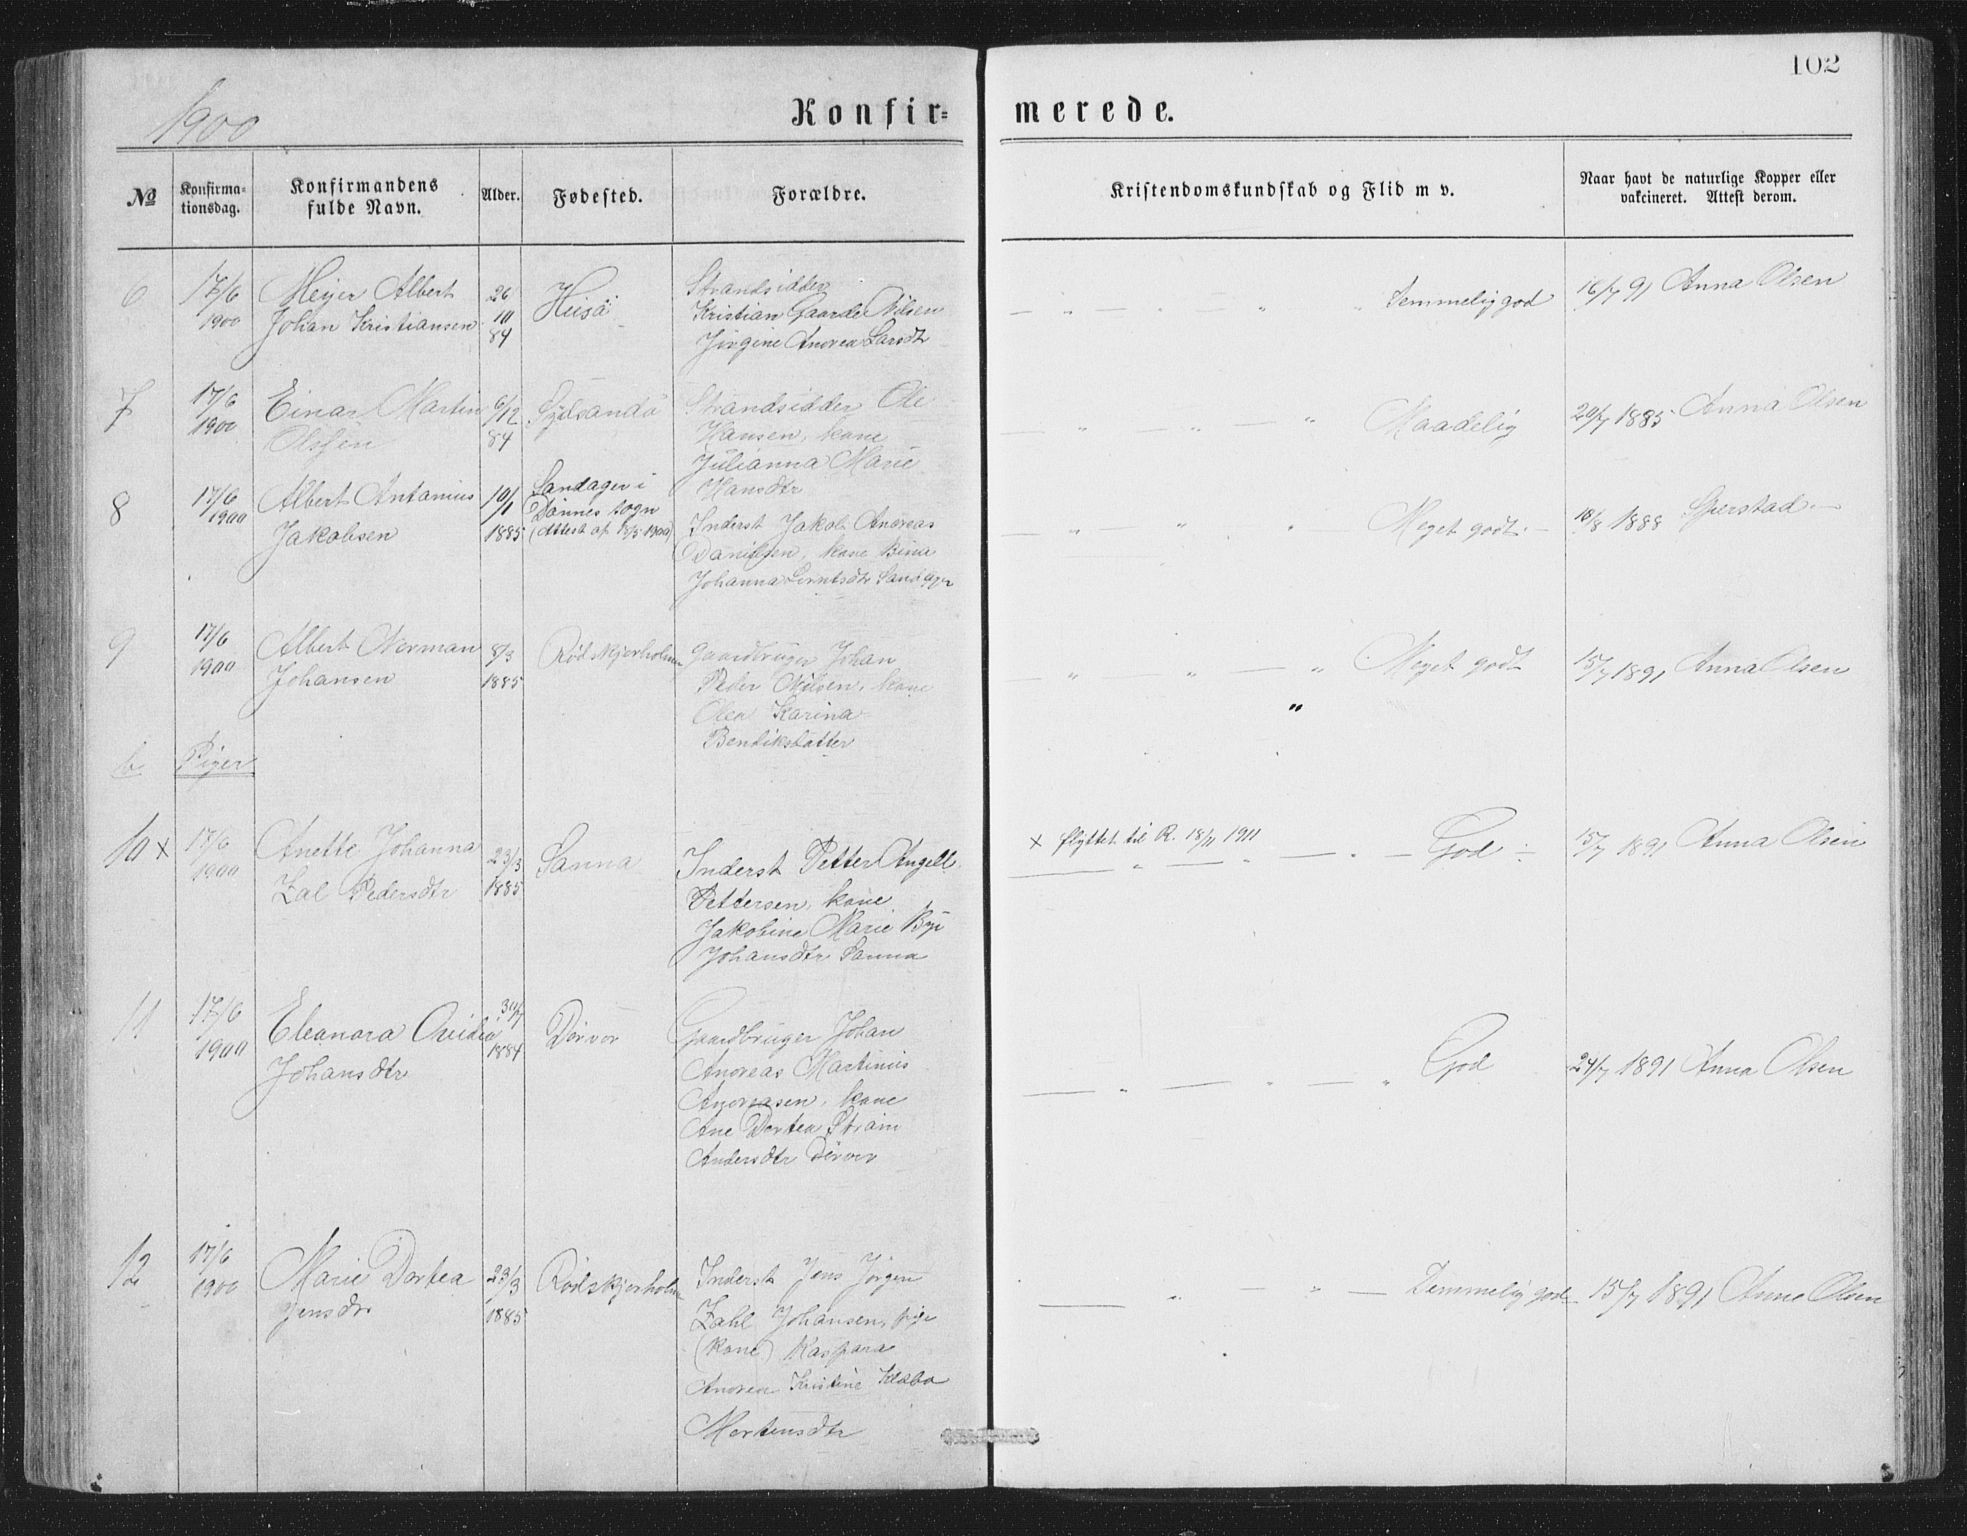 102
1900
Konfir=
merede.
№
Konfirma=
tionsdag.
Konfirmandens
fulde Navn.
Alder.
Fødested.
Forældre.
Kristendomskundskab og Flid m v.
Naar havt de naturlige Kopper eller
vakcineret. Attest derom.
6
17/6
1900
Meyer Albert
Johan Kristiansen
26
10
84
Husø
Strandsidder
Kristian Gaarde Nilsen
Jørgine Andrea Larsdtr
— „ — „ — „ „ Temmelig god
16/7 91 Anna Olsen
7
17/6
1900
Einar Martin
Olsen
6/12
84
Sydsandø
Strandsidder Ole
Hansen, kone
Julianna Marie
Hansdtr
— „ — „ — „ Maadelig
20/7 1885 Anna Olsen
8
17/6
1900
Albert Antanius
Jakobsen
10/1
1885
Sandager i
Dønnes sogn
(Attest af 18/5 1900)
Inderst Jakob Andreas
Danielsen, kone Bina
Johanna Berntsdtr Sandager
— „ — „ „ Meget godt. —
18/8 1888 Sperstad. —
9
17/6
1900
Albert Norman
Johansen
8/3
1885
Rødskjerholmen
Gaardbruger Johan
Peder Nilsen, kone
Olea Karina
Bendiksdatter
— „ — „ — „ Meget godt
„
15/7 1891 Anna Olsen
b Piger
10 x
17/6
1900
Anette Johanna
Zal Pedersdtr
23/3
1885
Sanna
Inderst Petter Angell
Pettersen, kone
Jakobine Marie By
Johansdtr Sanna
x flyttet til R. 18/11 1911
— „ — „ — „ — God —
15/7 1891 Anna Olsen
11
17/6
1900
Eleanora Ovidia
Johansdtr
31/7
1884
Dørvær
Gaardbruger Johan
Andreas Martinus
Andreasen, kone
Ane Dortea Strøm
Andersdtr Dørvær
— „ — „ — „ God
24/7 1891 Anna Olsen
12
17/6
1900
Marie Dortea
Jensdtr
23/3
1885
Rødskjerholm
Inderst Jens Jørgen
Zahl Johansen, pige
(kone) Kaspara
Andrea Kristine Klæbo
Mortensdtr
— „ — „ — Temmelig god —
15/7 1891 Anna Olsen